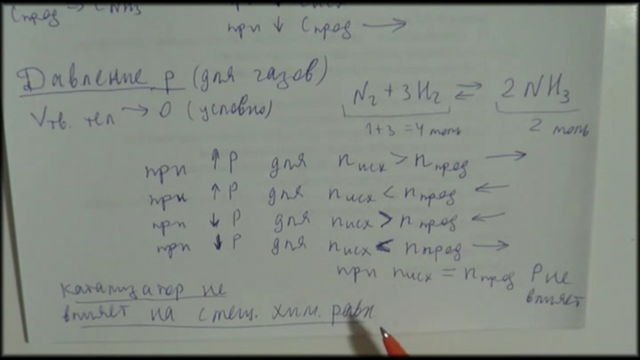 Cпрод → CNH3
при ↓ Cпрод →
Давление p (для газов)
Vтв. тел → 0 (условно)
N2 + 3H2 ⇄ 2NH3
1+3=4 моль
2 моль
при ↑ P для nисх > nпрод →
при ↑ P для nисх < nпрод ←
при ↓ P для nисх > nпрод ←
при ↓ P для nисх < nпрод →
при nисх = nпрод P не
влияет
катализатор не
влияет на смещ. хим. равн